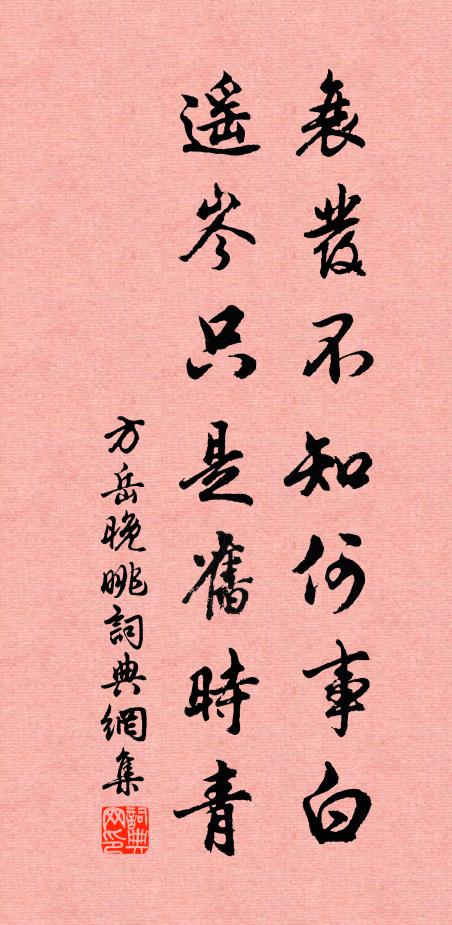 衰發不知何事白
遥岑只是舊時青
方岳晚眺詞典網集
詞典網印